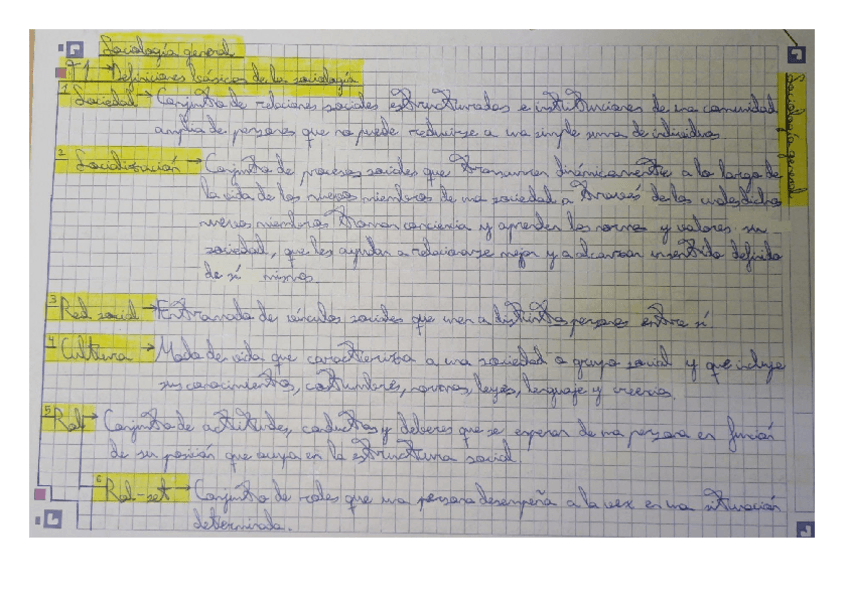 Sociología general
T1 → Definiciones básicas de la sociología
1 Sociedad → Conjunto de relaciones sociales estructuradas e instituciones de una comunidad
amplia de personas que no puede reducirse a una simple suma de individuos.
2 Socialización → Conjunto de procesos sociales que transcurren dinámicamente a lo largo de
la vida de los nuevos miembros de una sociedad a través de los cuales dichos
nuevos miembros toman conciencia y aprenden las normas y valores su
sociedad, que les ayudan a relacionarse mejor y a alcanzar un sentido definido
de sí mismos.
3 Red social → Entramado de vínculos sociales que unen a distintas personas entre sí
4 Cultura → Modo de vida que caracteriza a una sociedad o grupo social y que incluye
sus conocimientos, costumbres, normas, leyes, lenguaje y creencias.
5 Rol → Conjunto de actitudes, conductas y deberes que se esperan de una persona en función
de su posición que ocupa en la estructura social.
6 Rol-set → Conjunto de roles que una persona desempeña a la vez en una situación
determinada.
Sociología general